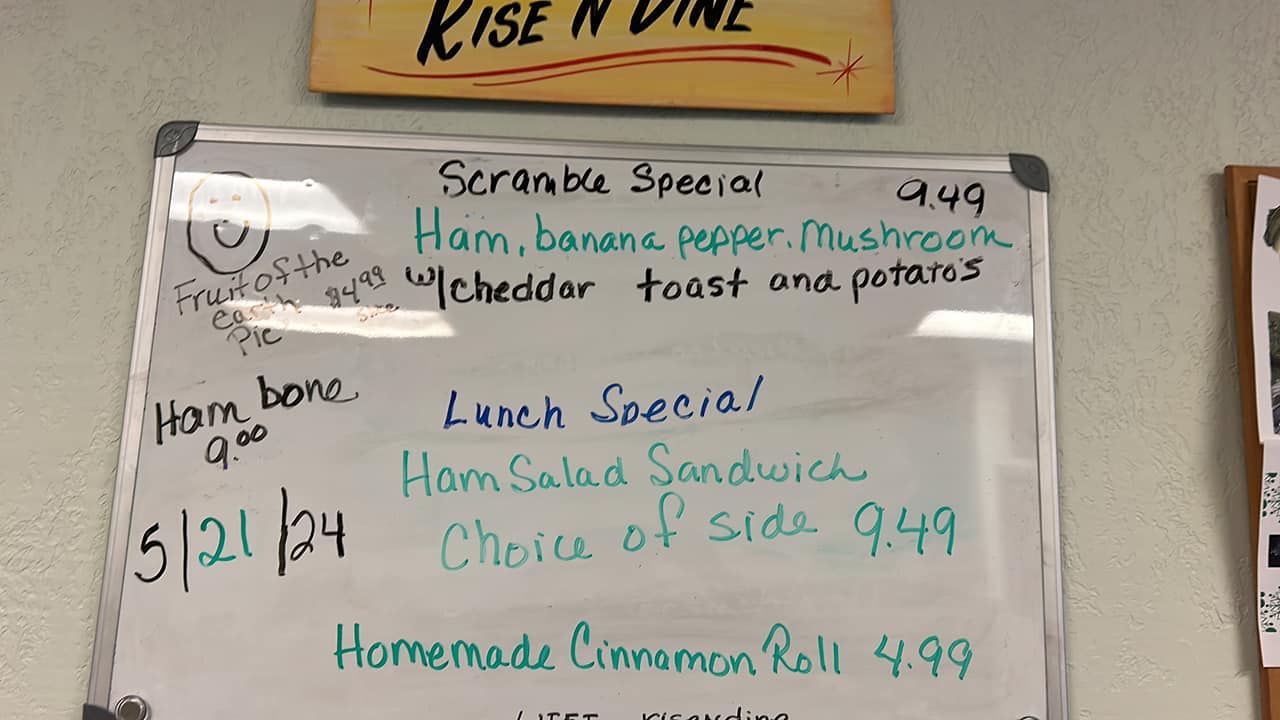 RISE N DINE
Scramble Special 9.49
Ham, banana pepper, Mushroom
w/cheddar toast and potato's
Fruit of the
earth $4.99
Pie
Ham bone
9.00
5/21/24
Lunch Special
Ham Salad Sandwich
Choice of side 9.49
Homemade Cinnamon Roll 4.99